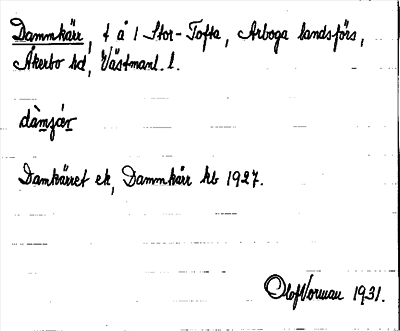 Dammkärr, t å 1 Stor-Tofta, Arboga landsförs,
Åkerbo hd, Västmanl. l.
dàmçær
Damkärret ek, Dammkärr hb 1927.
Olof Norman 1931.